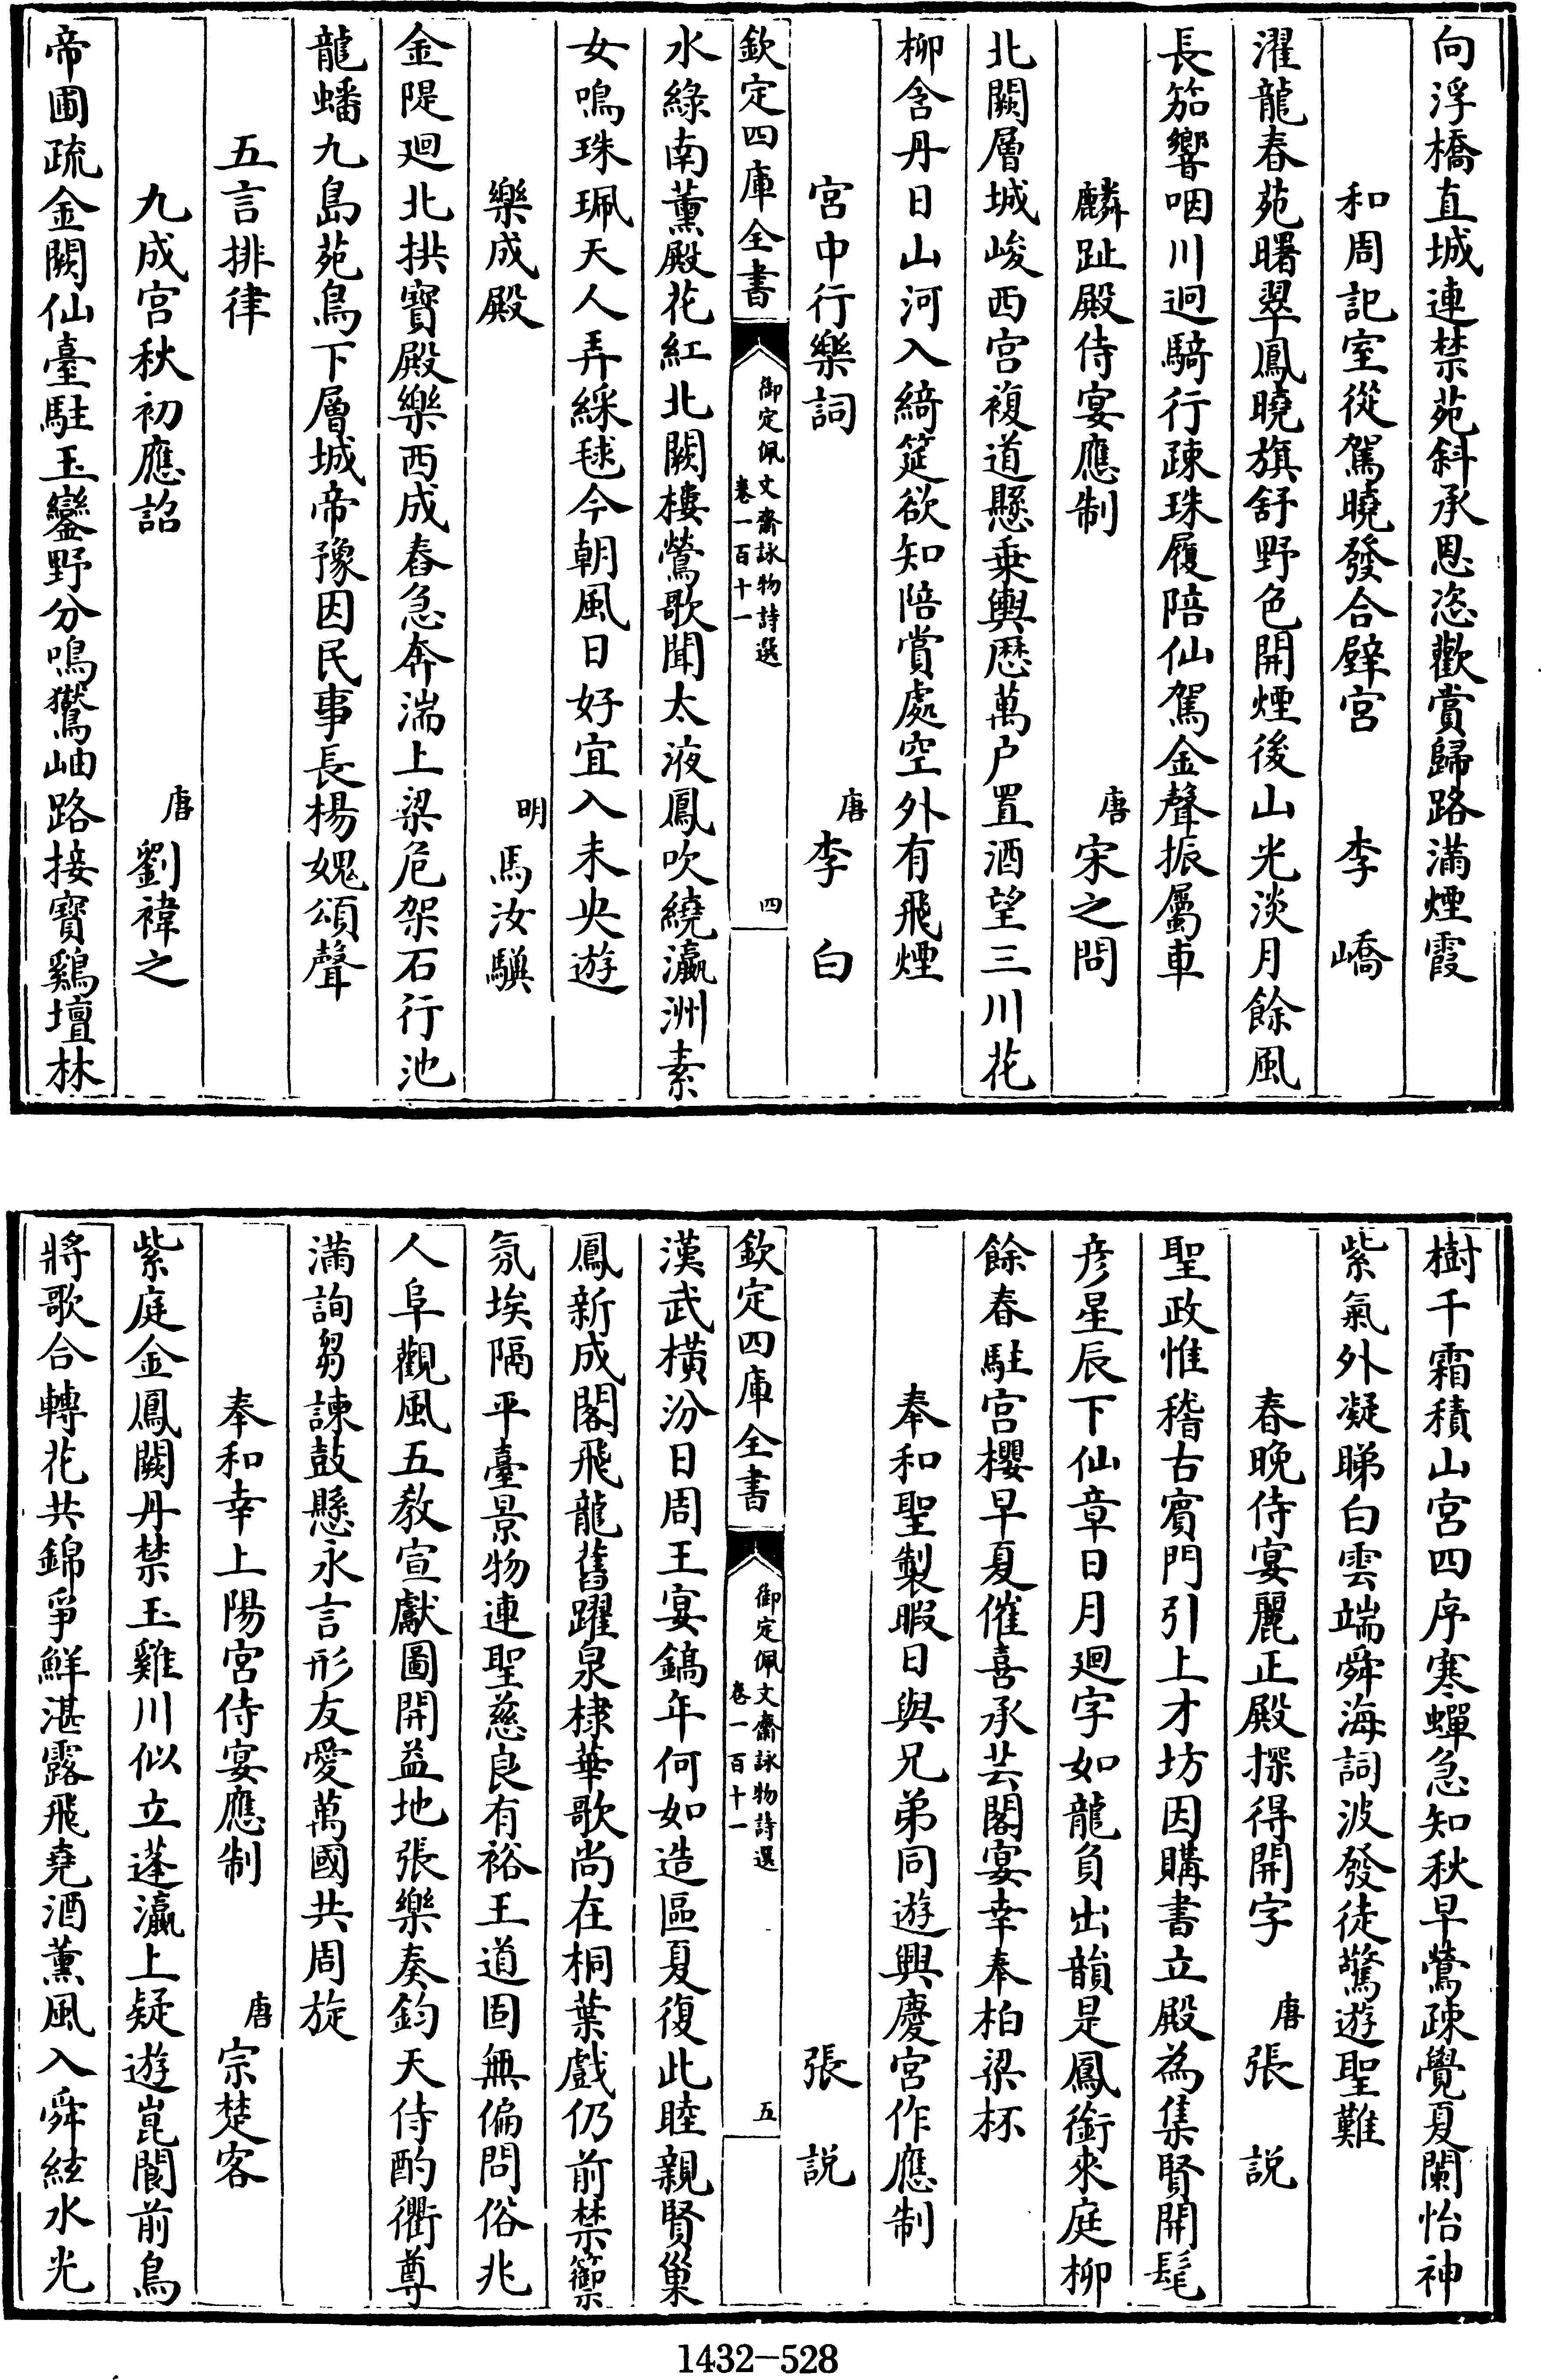 向浮橋直城連禁苑斜承恩恣歡賞歸路滿煙霞
和周記室從駕曉發合璧宮　李嶠
濯龍春苑曙翠鳳曉旗舒野色開煙後山光淡月餘風
長笳響咽川迥騎行疎珠履陪仙駕金聲振屬車
麟趾殿侍宴應制　唐宋之問
北闕層城峻西宮複道懸乗輿歷萬户置酒望三川花
柳含丹日山河入綺筵欲知陪賞處空外有飛煙
宮中行樂詞　唐李白
欽定四庫全書　御定佩文齋詠物詩選卷一百十一　四
水綠南薰殿花紅北闕樓鶯歌聞太液鳳吹繞瀛洲素
女鳴珠珮天人弄綵毬今朝風日好宜入未央遊
樂成殿　明馬汝驥
金隄廻北拱寶殿樂西成舂急奔湍上梁危架石行池
龍蟠九島苑鳥下層城帝豫因民事長楊媿頌聲
五言排律
九成宮秋初應詔　唐劉禕之
帝圃疏金闕仙臺駐玉鑾野分鳴鷟岫路接寶鷄壇林
樹千霜積山宮四序寒蟬急知秋早鶯疎覺夏闌怡神
紫氣外凝睇白雲端舜海詞波發徒驚遊聖難
春晚侍宴麗正殿探得開字　唐張說
聖政惟稽古賓門引上才坊因購書立殿為集賢開髦
彦星辰下仙章日月廻字如龍負出韻是鳳銜來庭柳
餘春駐宮櫻早夏催喜承芸閣宴幸奉柏梁杯
奉和聖製暇日與兄弟同遊興慶宮作應制
張說
欽定四庫全書　御定佩文齋詠物詩選卷一百十一　五
漢武橫汾日周王宴鎬年何如造區夏復此睦親賢巢
鳳新成閣飛龍舊躍泉棣華歌尚在桐葉戲仍前禁籞
氛埃隔平臺景物連聖慈良有裕王道固無偏問俗兆
人阜觀風五教宣獻圖開益地張樂奏鈞天侍酌衢尊
滿詢芻諫鼓懸永言形友愛萬國共周旋
奉和幸上陽宮侍宴應制　唐宗楚客
紫庭金鳳闕丹禁玉雞川似立蓬瀛上疑遊崑閬前鳥
將歌合轉花共錦爭鮮湛露飛堯酒薰風入舜絃水光
1432-528